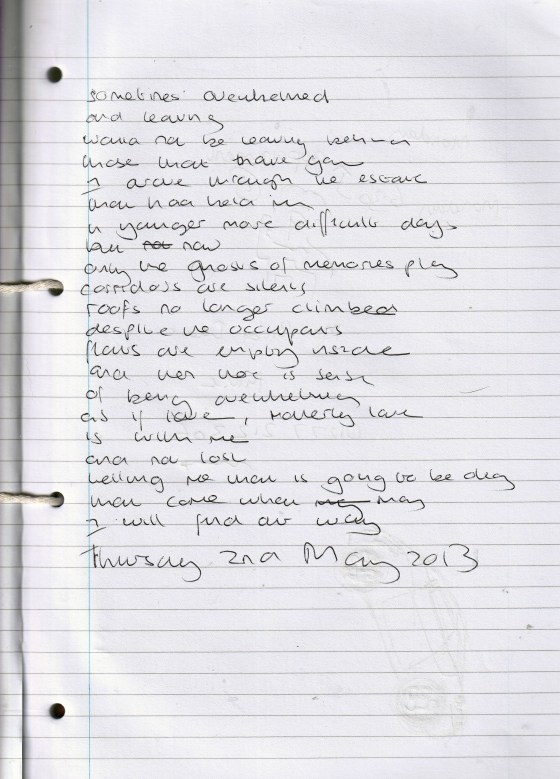 sometimes overwhelmed
and leaving
wana not be leaving behind
those that have gon
I arove through the estate
that had held im
in younger more difficult days
but not now
only the ghosts of memories play
corridors are silent
roofs no longer climbed
despite the occupants
flats are empty inside
and yet there is sense
of being overwhelming
as if love, motherly love
is with me
and not lost
telling me that is going to be okay
that come what may may
I will find our way
Thursday 2nd May 2013